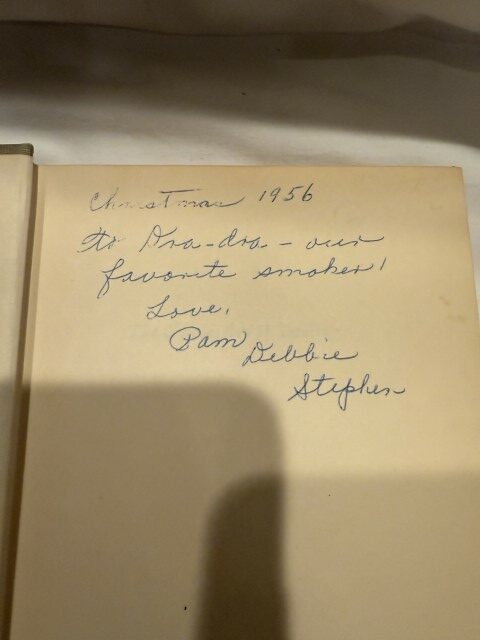 Christmas 1956
to Dra-dra - our
favorite smoker!
Love,
Pam
Debbie
Stephen